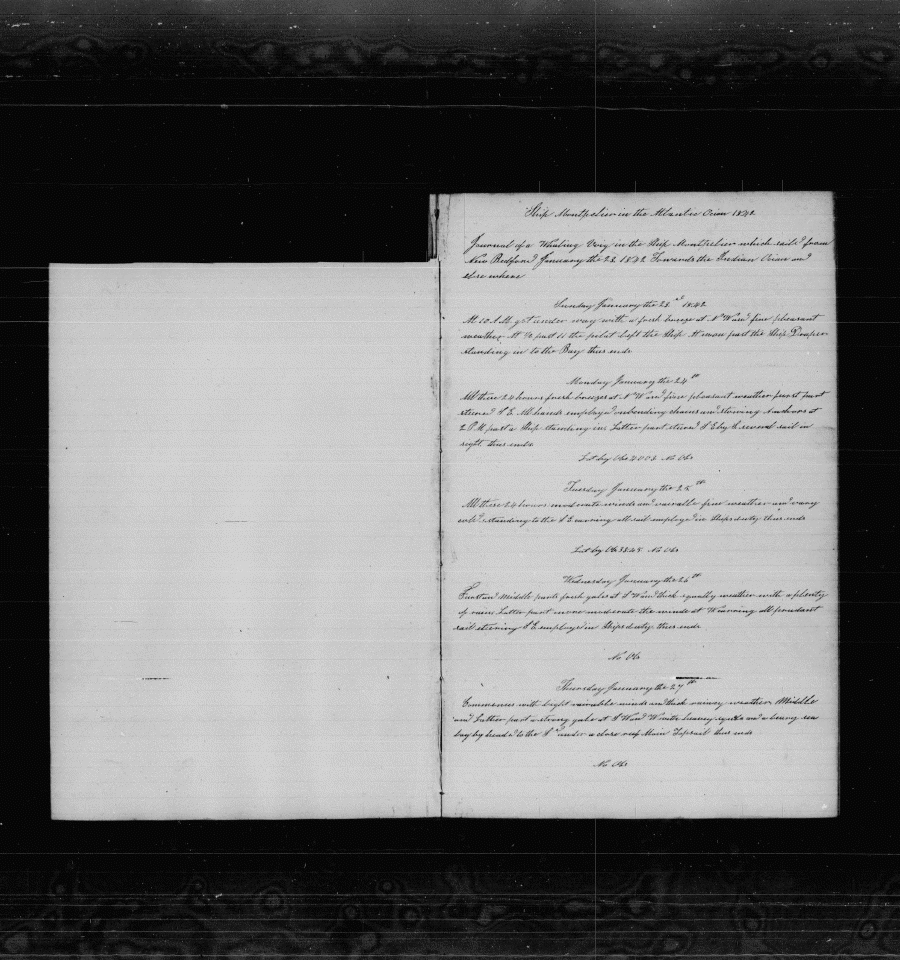 Ship Montpelier in the Atlantic Ocian 1842
Journal of a Whaling Voig in the Ship Montpelier which saild from
New Bedford January the 23 1842 Towards the Indian Ocian and
else where
Sunday January the 23 1842
At 10 A M got under way with a fresh breeze at N Wand fine pleasant
weather At ½ past 11 the pilot left the Ship At noon past the Ship
standing in to the Bay thus ends
Monday January the 24th
All these 24 hours fresh breezes at N W and fine pleasant weather first part
steered S E All hands employed unbending chains and stowing Anchors at
2 P M past a Ship standing in Latter part steered S E by E several sail in
sight thus ends
Lat by Obs 40 03 No Obs
Tuesday January the 25th
All these 24 hours moderate winds and variable fine weather and very
cold standing to the S E carring all sail employed in Ships duty thus ends
Lat by Obs 38 45 No Obs
Wednesday January the 26th
First and Middle parts fresh gales at S W and thick squally weather with a plenty
of rain Latter part more moderate the winds at W carring all prudant
sail steering S E employed in Ships duty thus ends
No Obs
Thursday January the 27th
Commences with light variable winds and thick rainey weather Middle
and Latter part a strong gale at S W and W with heavey squalls and a heavy sea
lay by headed to the S under a close reef Main Topsail thus ends
No Obs